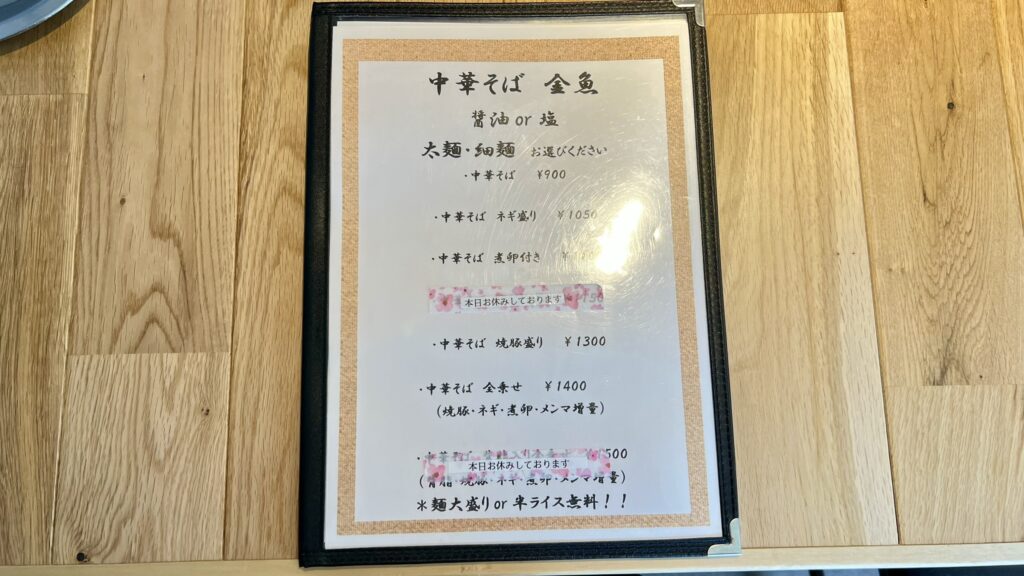 中華そば 金魚
醤油 or 塩
太麺・細麺 お選びください
・中華そば ¥900
・中華そば ネギ盛り ¥1050
・中華そば 煮卵付き ¥
本日お休みしております
・中華そば 焼豚盛り ¥1300
・中華そば 全乗せ ¥1400
(焼豚・ネギ・煮卵・メンマ増量)
・中華そば 500
本日お休みしております
(背脂・焼豚・ネギ・煮卵・メンマ増量)
*麺大盛り or 半ライス無料!!